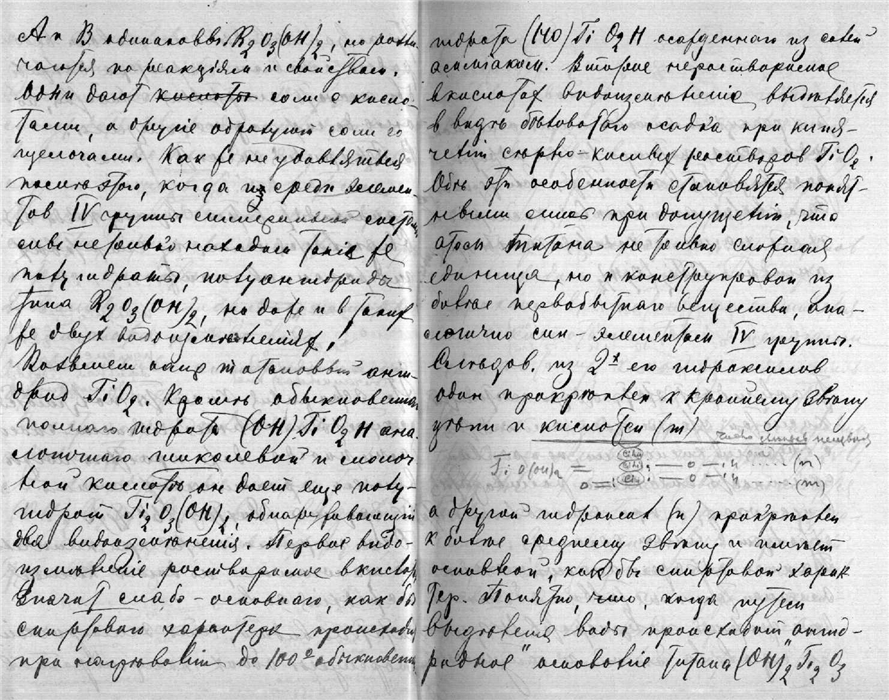 А и В одинаковы R2O3(OH)2, но разли-
чаются по реакциям и свойствам.
Одни дают кислоты соли с кисло-
тами, а другие образуют соли со
щелочами. Как же не удивляться
после этого, когда и среди элемен-
тов IV группы системы
мы не только находим такие же
полугидраты, полуангидриды
типа R2O3(OH)2, но даже и в таких
же двух видоизменениях.
Возьмем еще титановый анги-
дрид TiO2. Кроме обыкновенного
полного гидрата (OH)TiO2H ана-
логичного гликолевой и молоч-
ной кислоты он дает еще полу-
гидрат Ti2O3(OH)2, обнаруживающий
два видоизменения. Первое видо-
изменение растворимое в кислотах,
значит слабо-основного, как бы
спиртового характера происходит
при нагревании до 100° обыкновен.
гидрата (HO)TiO2H осажденного из солей
аммиаком. Второе нерастворимое
в кислотах видоизменение выделяется
в виде беловатого осадка при кипя-
чении серно-кислых растворов TiO2.
Обе эти особенности становятся понят-
ными лишь при допущении, что
атом титана не только сложная
единица, но и конструирован из
более первобытного вещества, ана-
логично
 элементам IV группы.
Следов. из 2х его гидроксилов
один прикреплен к крайнему звену
цепи и кислотен (m)
TiO(OH)2 = (n)
(m)
а другой гидроксил (n) прикреплен
к более среднему звену и имеет
основной, как бы спиртовой харак-
тер. Понятно, что, когда путем
выделения воды происходит ангид-
ридное" основание титана (OH)2Ti2O3